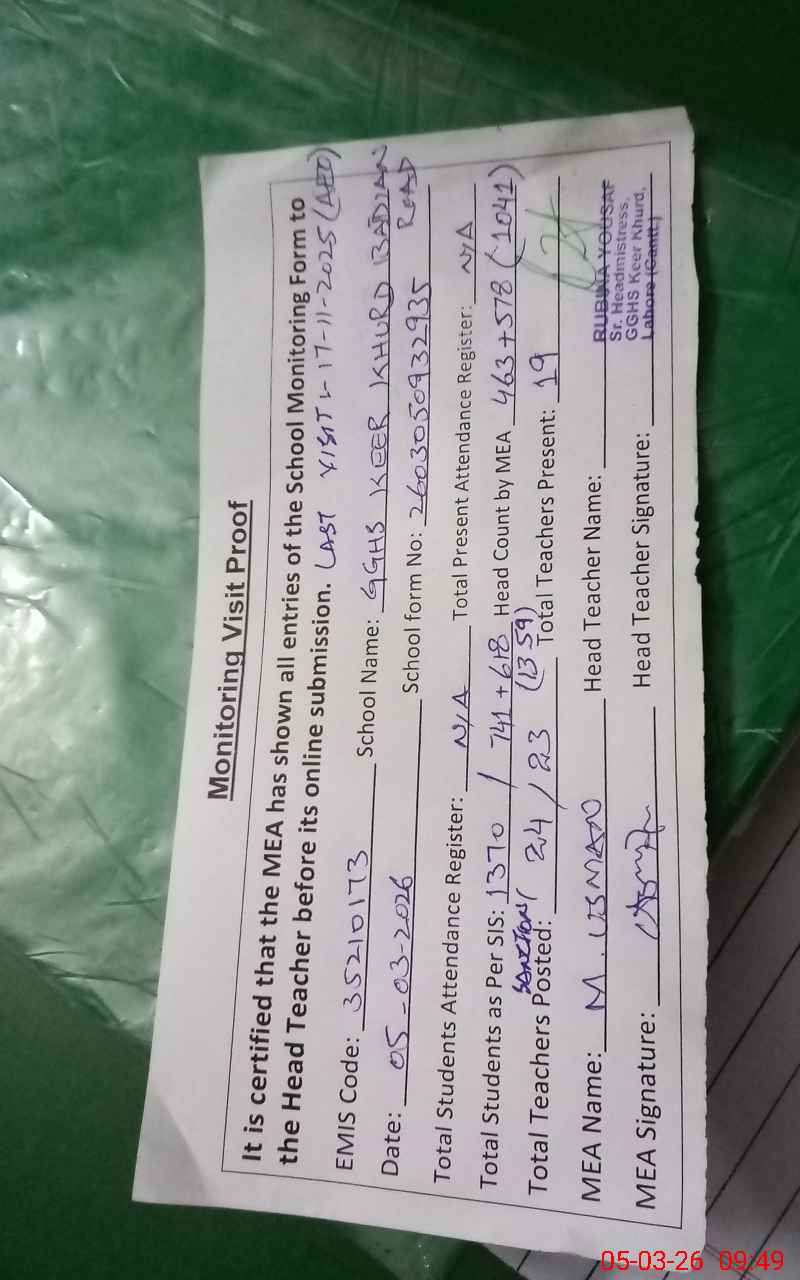 Monitoring Visit Proof
It is certified that the MEA has shown all entries of the School Monitoring Form to
the Head Teacher before its online submission. LAST VISIT 17-11-2025 (AEO)
EMIS Code: 35210173 School Name: GGHS KEER KHURD BADIAN ROAD
Date: 05-03-2026 School form No: 2603050932935
Total Students Attendance Register: N/A Total Present Attendance Register: N/A
Total Students as Per SIS: 1370 / 741+618 (1359) Head Count by MEA 463+578 (1041)
Total Teachers Posted: SANCTION/ 24/23 Total Teachers Present: 19
MEA Name: M. USMAN Head Teacher Name: RUBINA YOUSAF
Sr. Headmistress,
GGHS Keer Khurd,
Lahore (Cantt.)
MEA Signature: Head Teacher Signature:
05-03-26 09:49